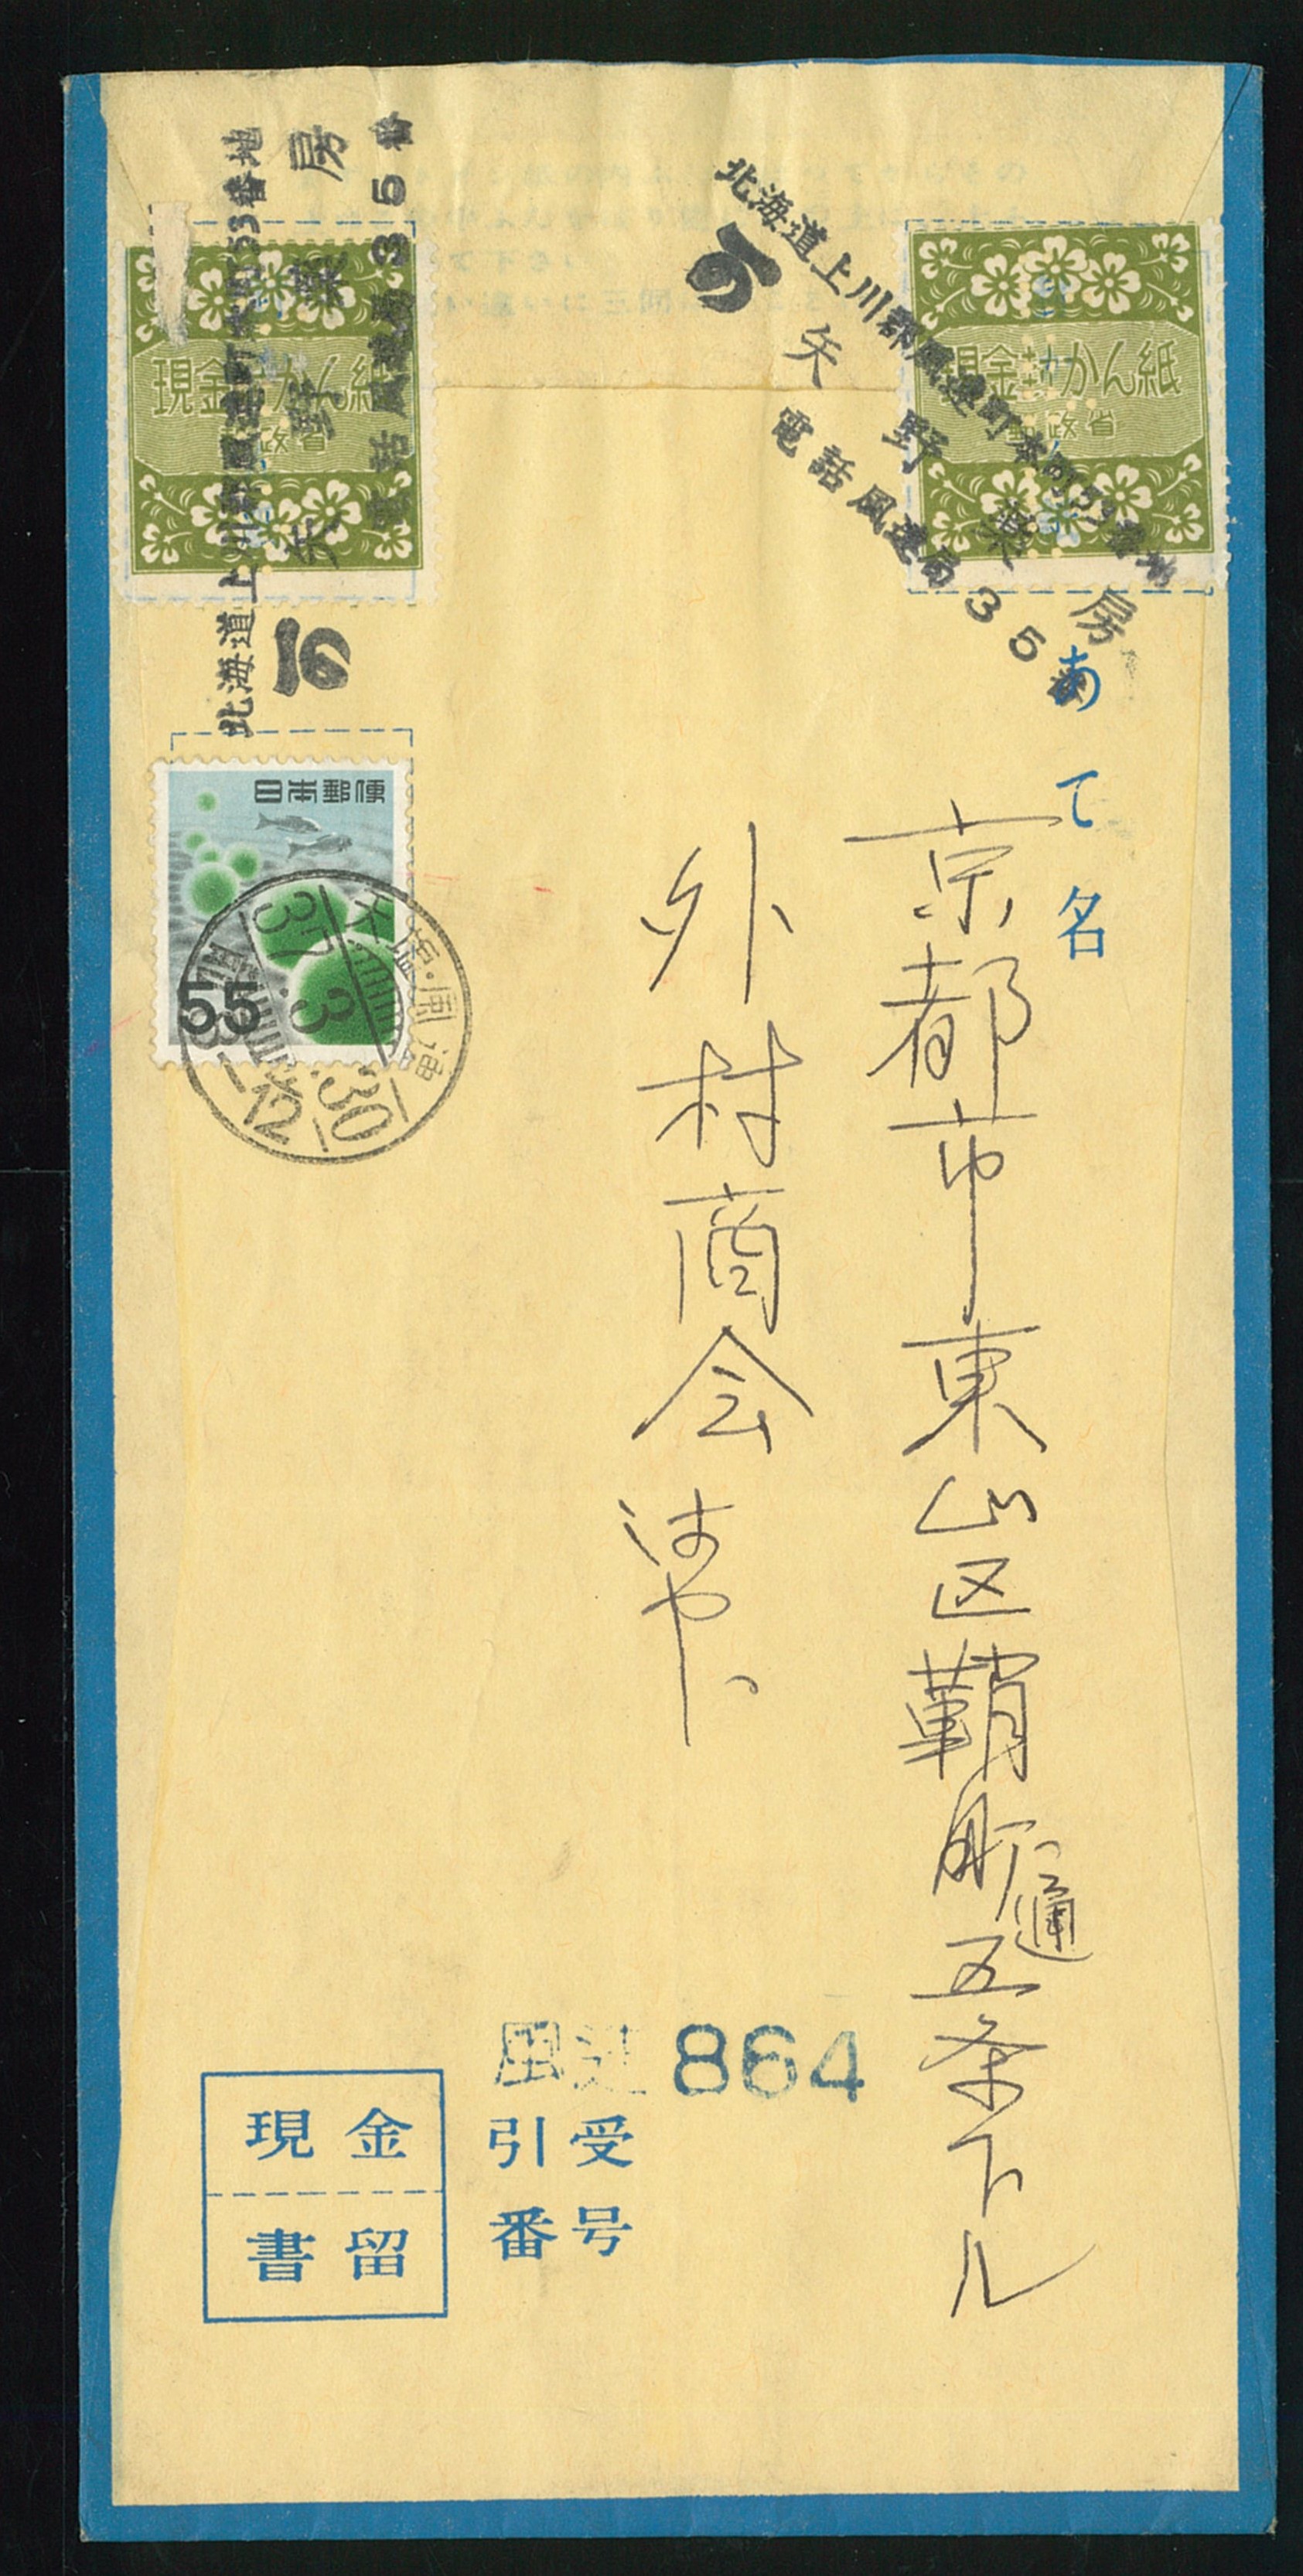 北海道上川郡風連町本町53番地
矢野薬房
電話風連局35番
現金封かん紙
郵政省
北海道上川郡風連町本町53番地
矢野薬房
電話風連局35番
現金封かん紙
郵政省
あて名
京都市東山区鞘町通五条下ル
外村商会
日本郵便
55
天塩・風連
37.3.30
8-12
風連 864
引受
番号
現金
書留